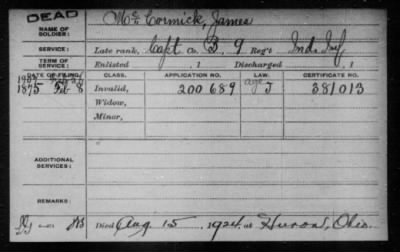 DEAD
NAME OF SOLDIER: McCormick, James
SERVICE: Late rank, Capt Co. B, 9 Reg't Ind. Inf
TERM OF SERVICE: Enlisted , 1 Discharged , 1
DATE OF FILING. CLASS. APPLICATION NO. LAW. CERTIFICATE NO.
1875 Feb 8 Invalid, 200689 J 381013
Widow,
Minor,
ADDITIONAL SERVICES:
REMARKS:
Died Aug 15, 1924, at Huron, Ohio.